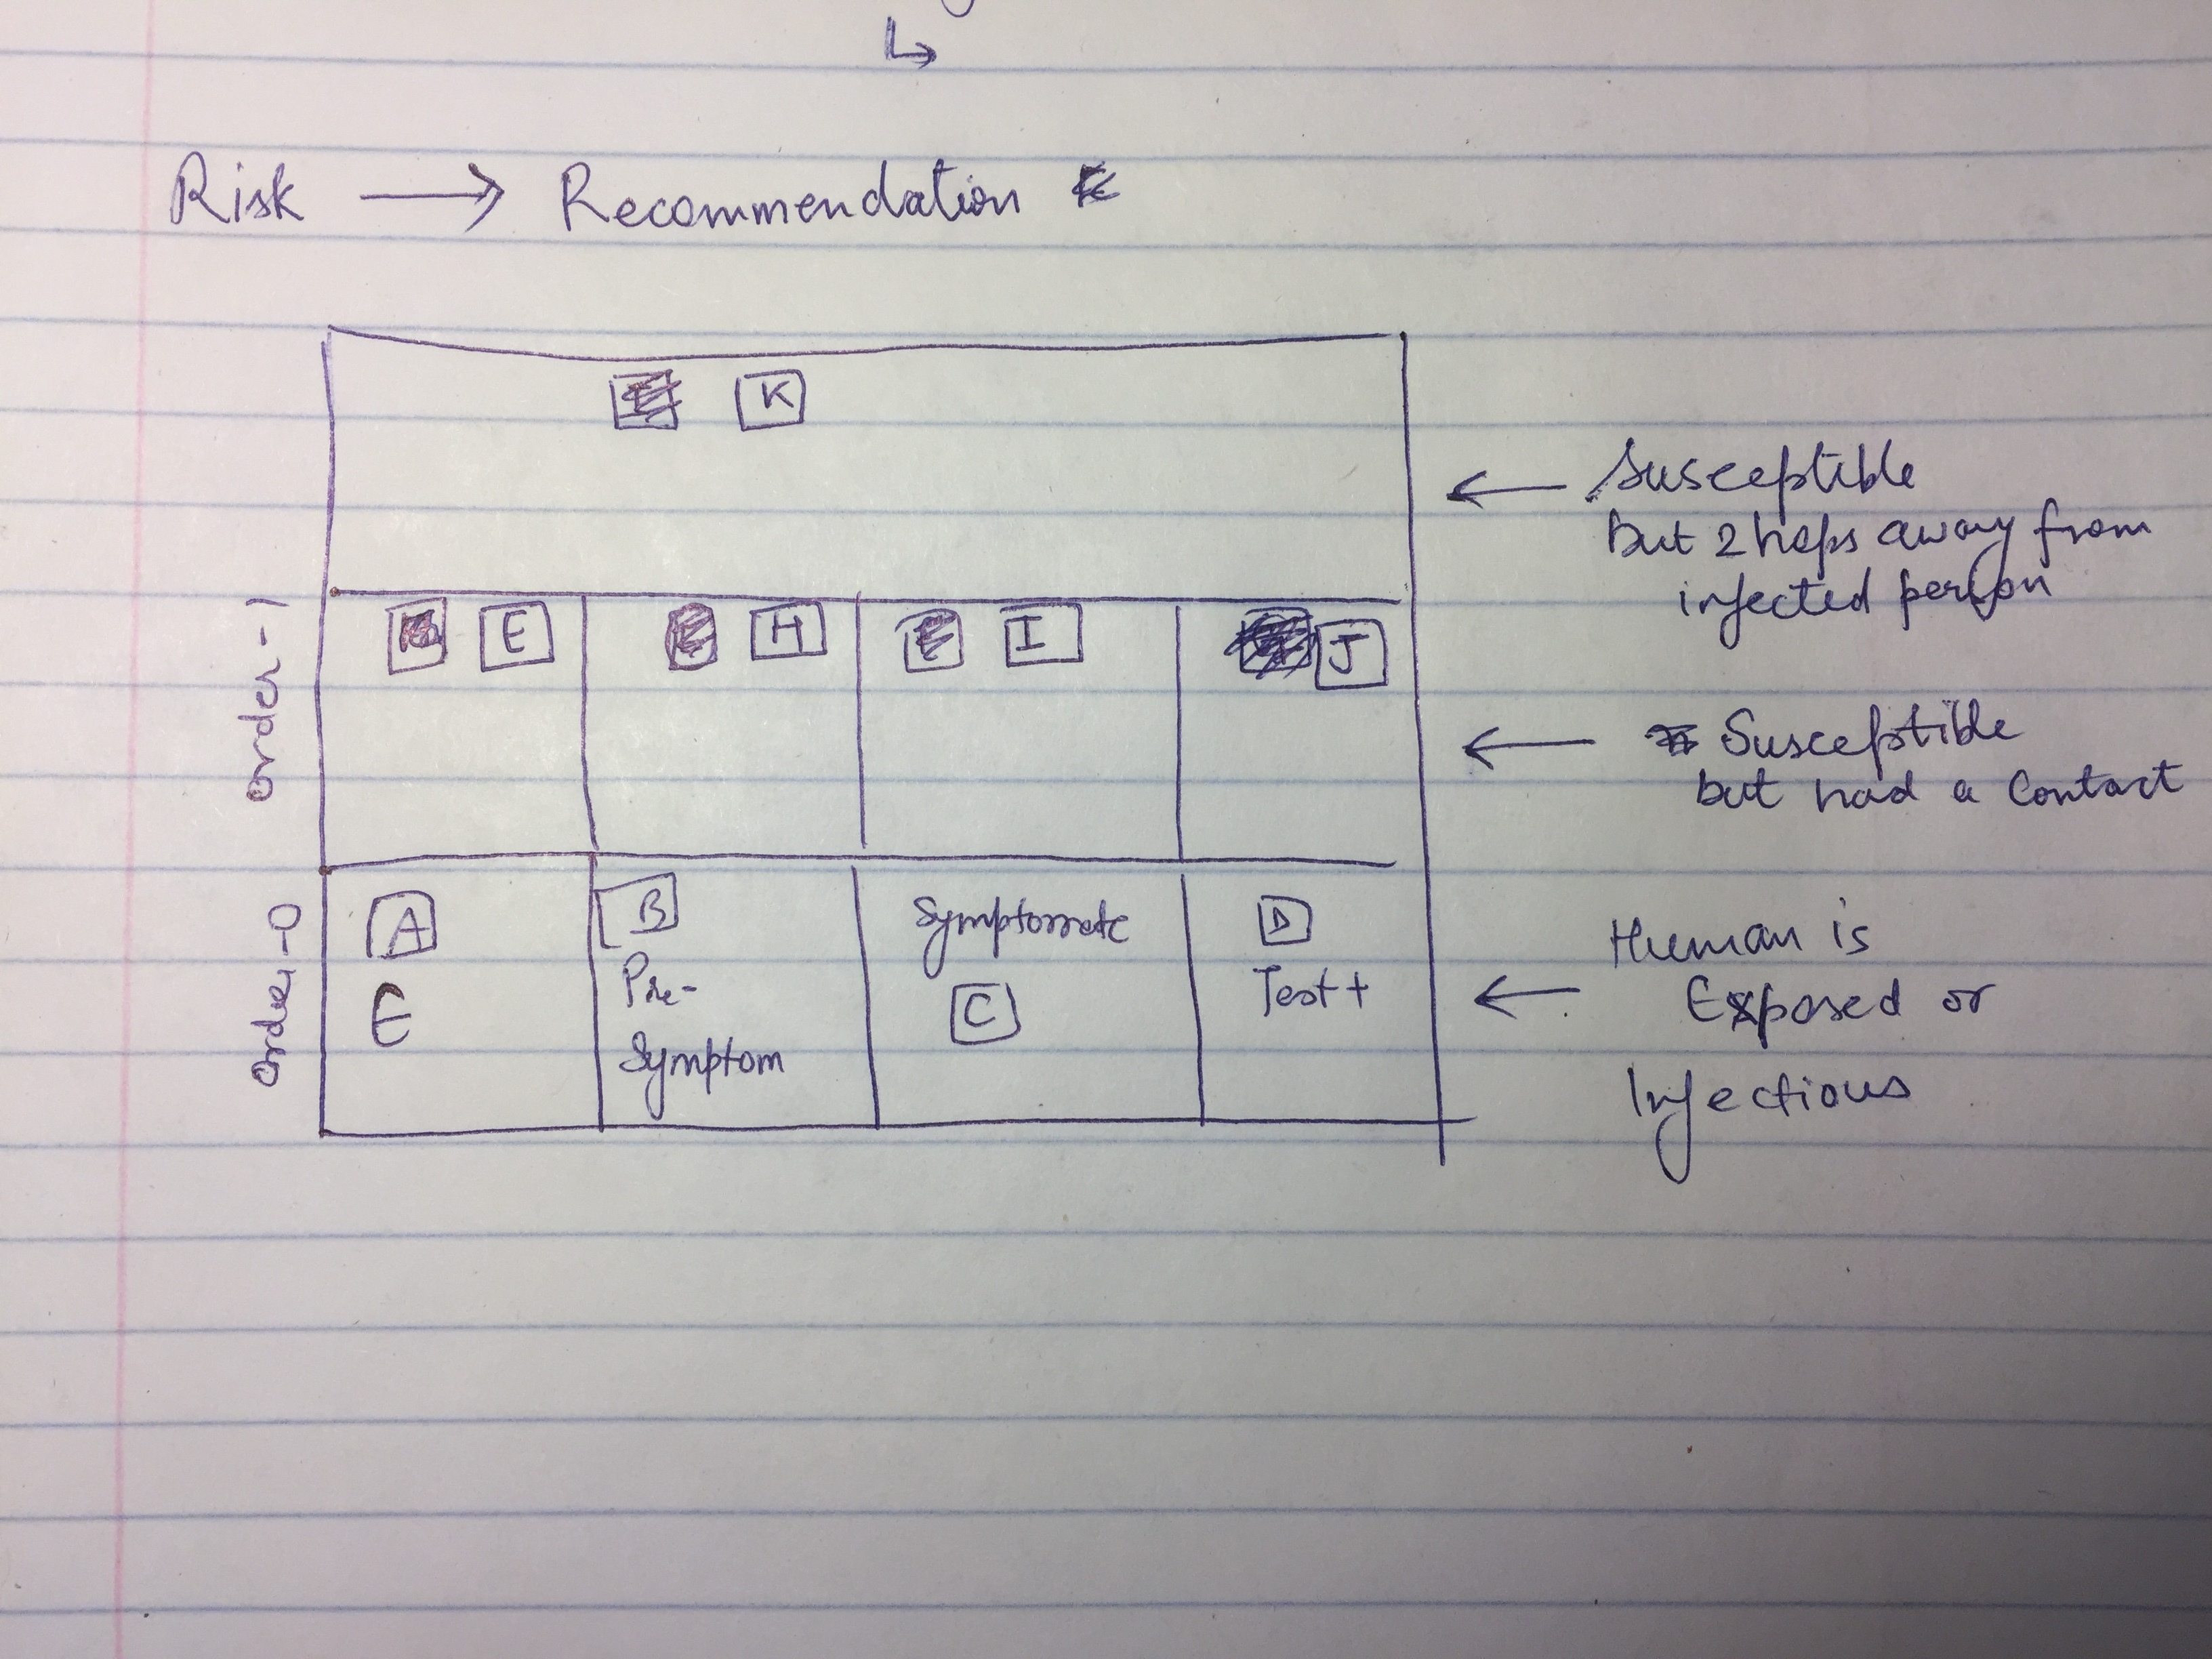 Risk → Recommendation
K
Susceptible
but 2 hops away from
infected person
order-1
E H I J
Susceptible
but had a Contact
order-0
A
E
B
Pre-
Symptom
Symptomatc
C
D
Test+
Human is
Exposed or
Infectious